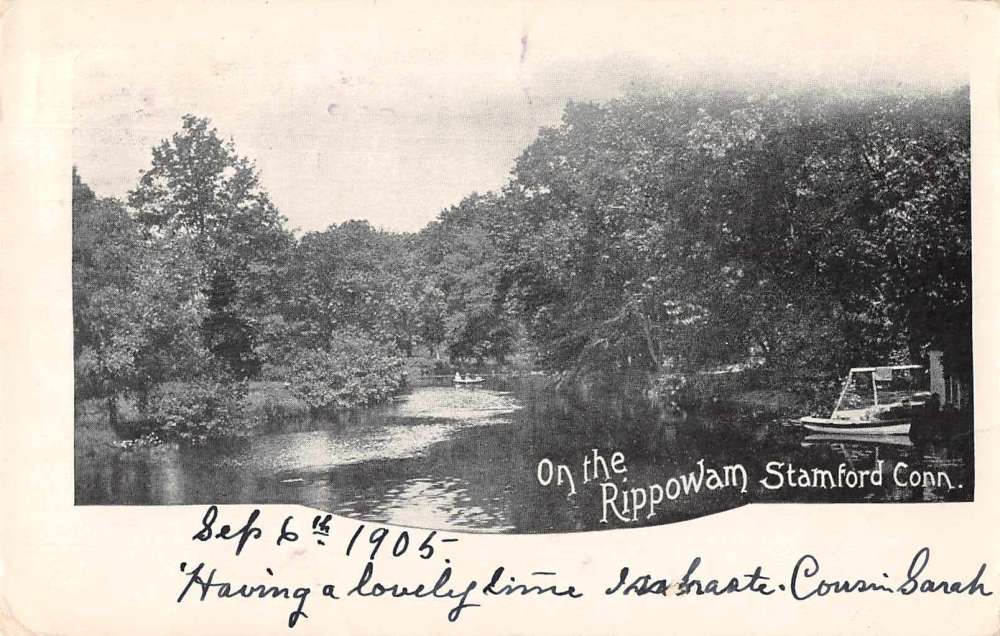 On the
Rippowam Stamford Conn.
Sep 6th 1905.
"Having a lovely time haste. Cousin Sarah